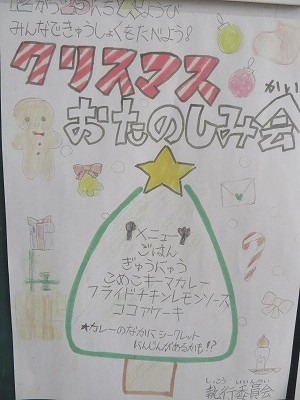 みんなできゅうしょくをたべよう!
クリスマス
おたのしみ会
かい
メニュー
ごはん
ぎゅうにゅう
こめこキーマカレー
フライドチキンレモンソース
ココアケーキ
★カレーのなかに シークレット
にんじんがあるかも!?
しっこう いいんかい
執行委員会